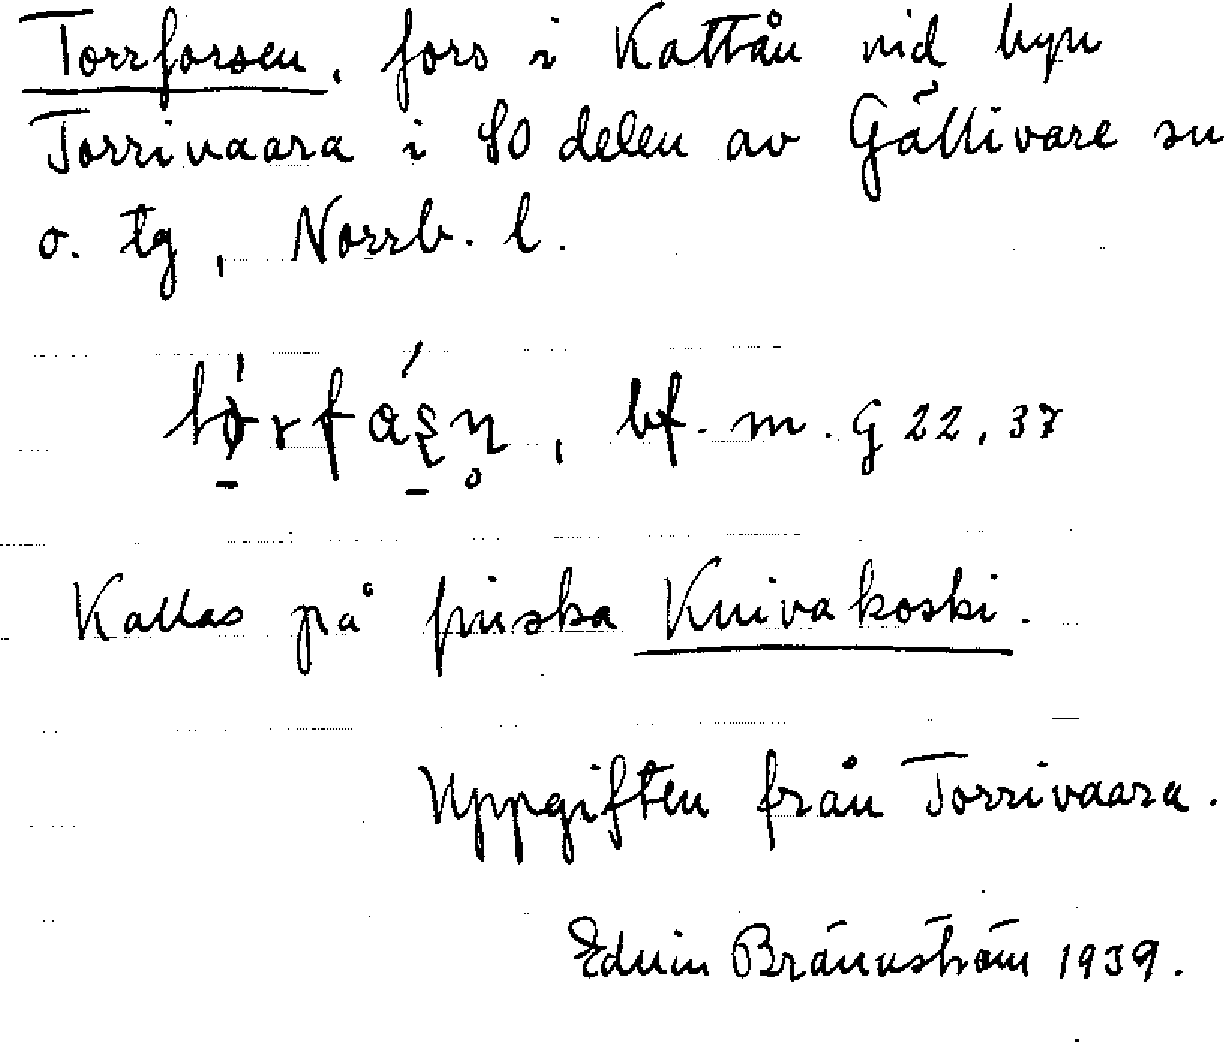 Torrforsen, fors i Kattån vid byn
Torrivaara i SO delen av Gällivare sn
o. tg, Norrb. l.
bf. m. G 22, 37
Kallas på finska Kuivakoski.
Uppgiften från Torrivaara.
Edvin Brännström 1939.